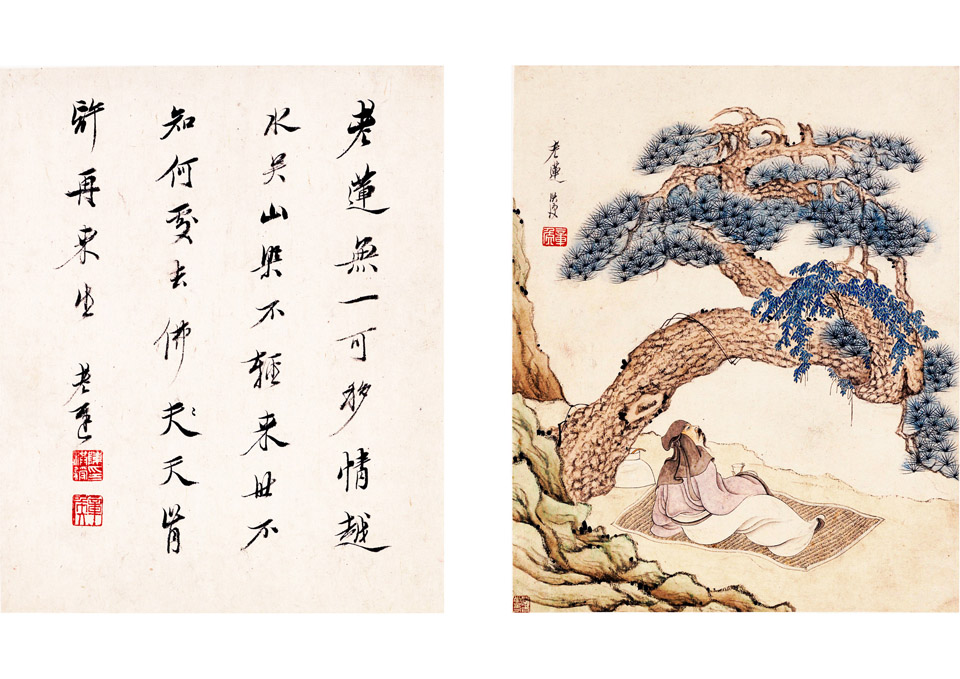 老蓮無一可移情越
水吴山染不輕来世不
知何處去佛天天肯
許再来生
老蓮
老蓮 洪綬